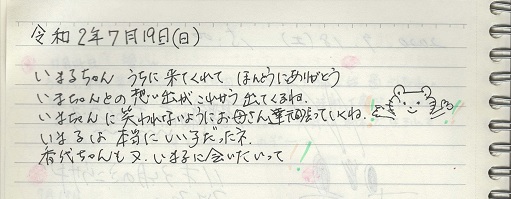 令和2年7月19日(日)
いまるちゃん うちに来てくれて ほんとうにありがとう
いまちゃんとの想い出がこれから出てくるね.
いまちゃんに笑われないようにお母さん達頑張っていくね.
いまるは本当にいい子だったネ.
香代ちゃんも又.いまるに会いたいって